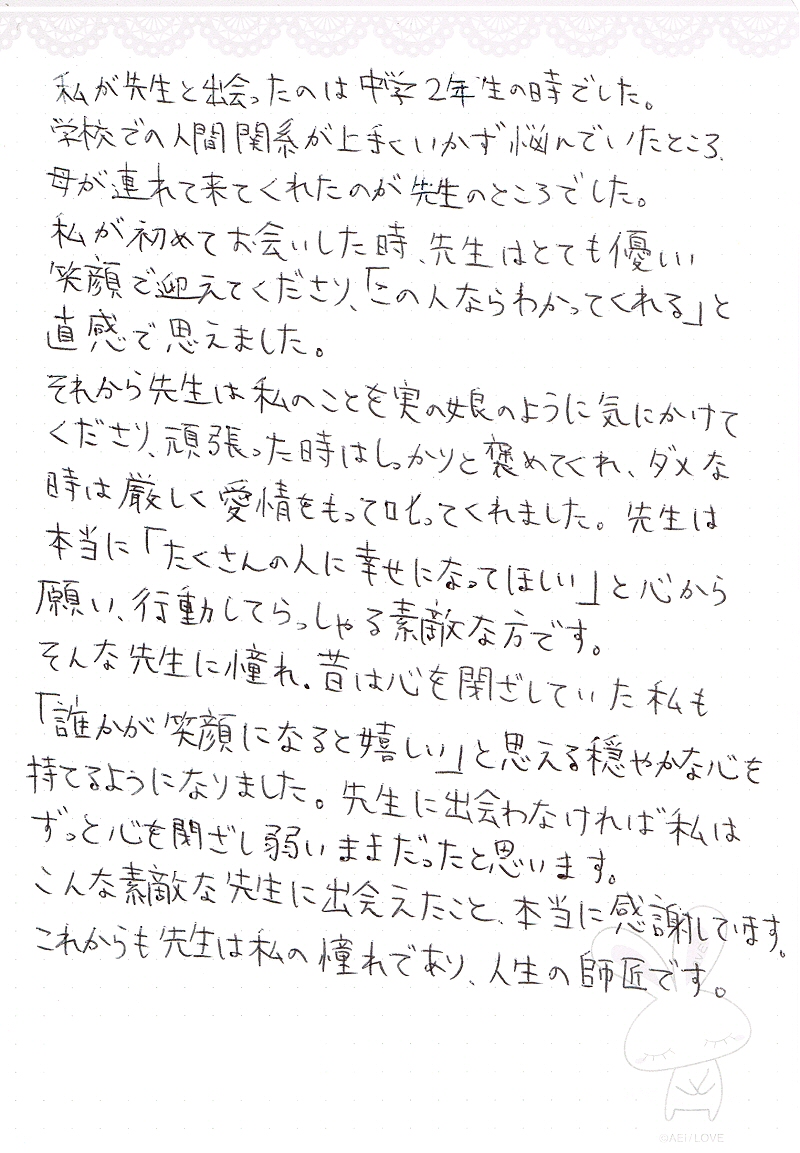 私が先生と出会ったのは中学2年生の時でした。
学校での人間関系が上手くいかず悩んでいたところ、
母が連れて来てくれたのが先生のところでした。
私が初めてお会いした時、先生はとても優い
笑顔で迎えてくださり、「この人ならわかってくれる」と
直感で思えました。
それから先生は私のことを実の娘のように気にかけて
くださり、頑張った時はしっかりと褒めてくれ、ダメな
時は厳しく愛情をもって叱ってくれました。先生は
本当に「たくさんの人に幸せになってほしい」と心から
願い、行動してらっしゃる素敵な方です。
そんな先生に憧れ、昔は心を閉ざしていた私も
「誰かが笑顔になると嬉しい」と思える穏やかな心を
持てるようになりました。先生に出会わなければ私は
ずっと心を閉ざし弱いままだったと思います。
こんな素敵な先生に出会えたこと、本当に感謝しています。
これからも先生は私の憧れであり、人生の師匠です。
LOVE
©AEI/LOVE